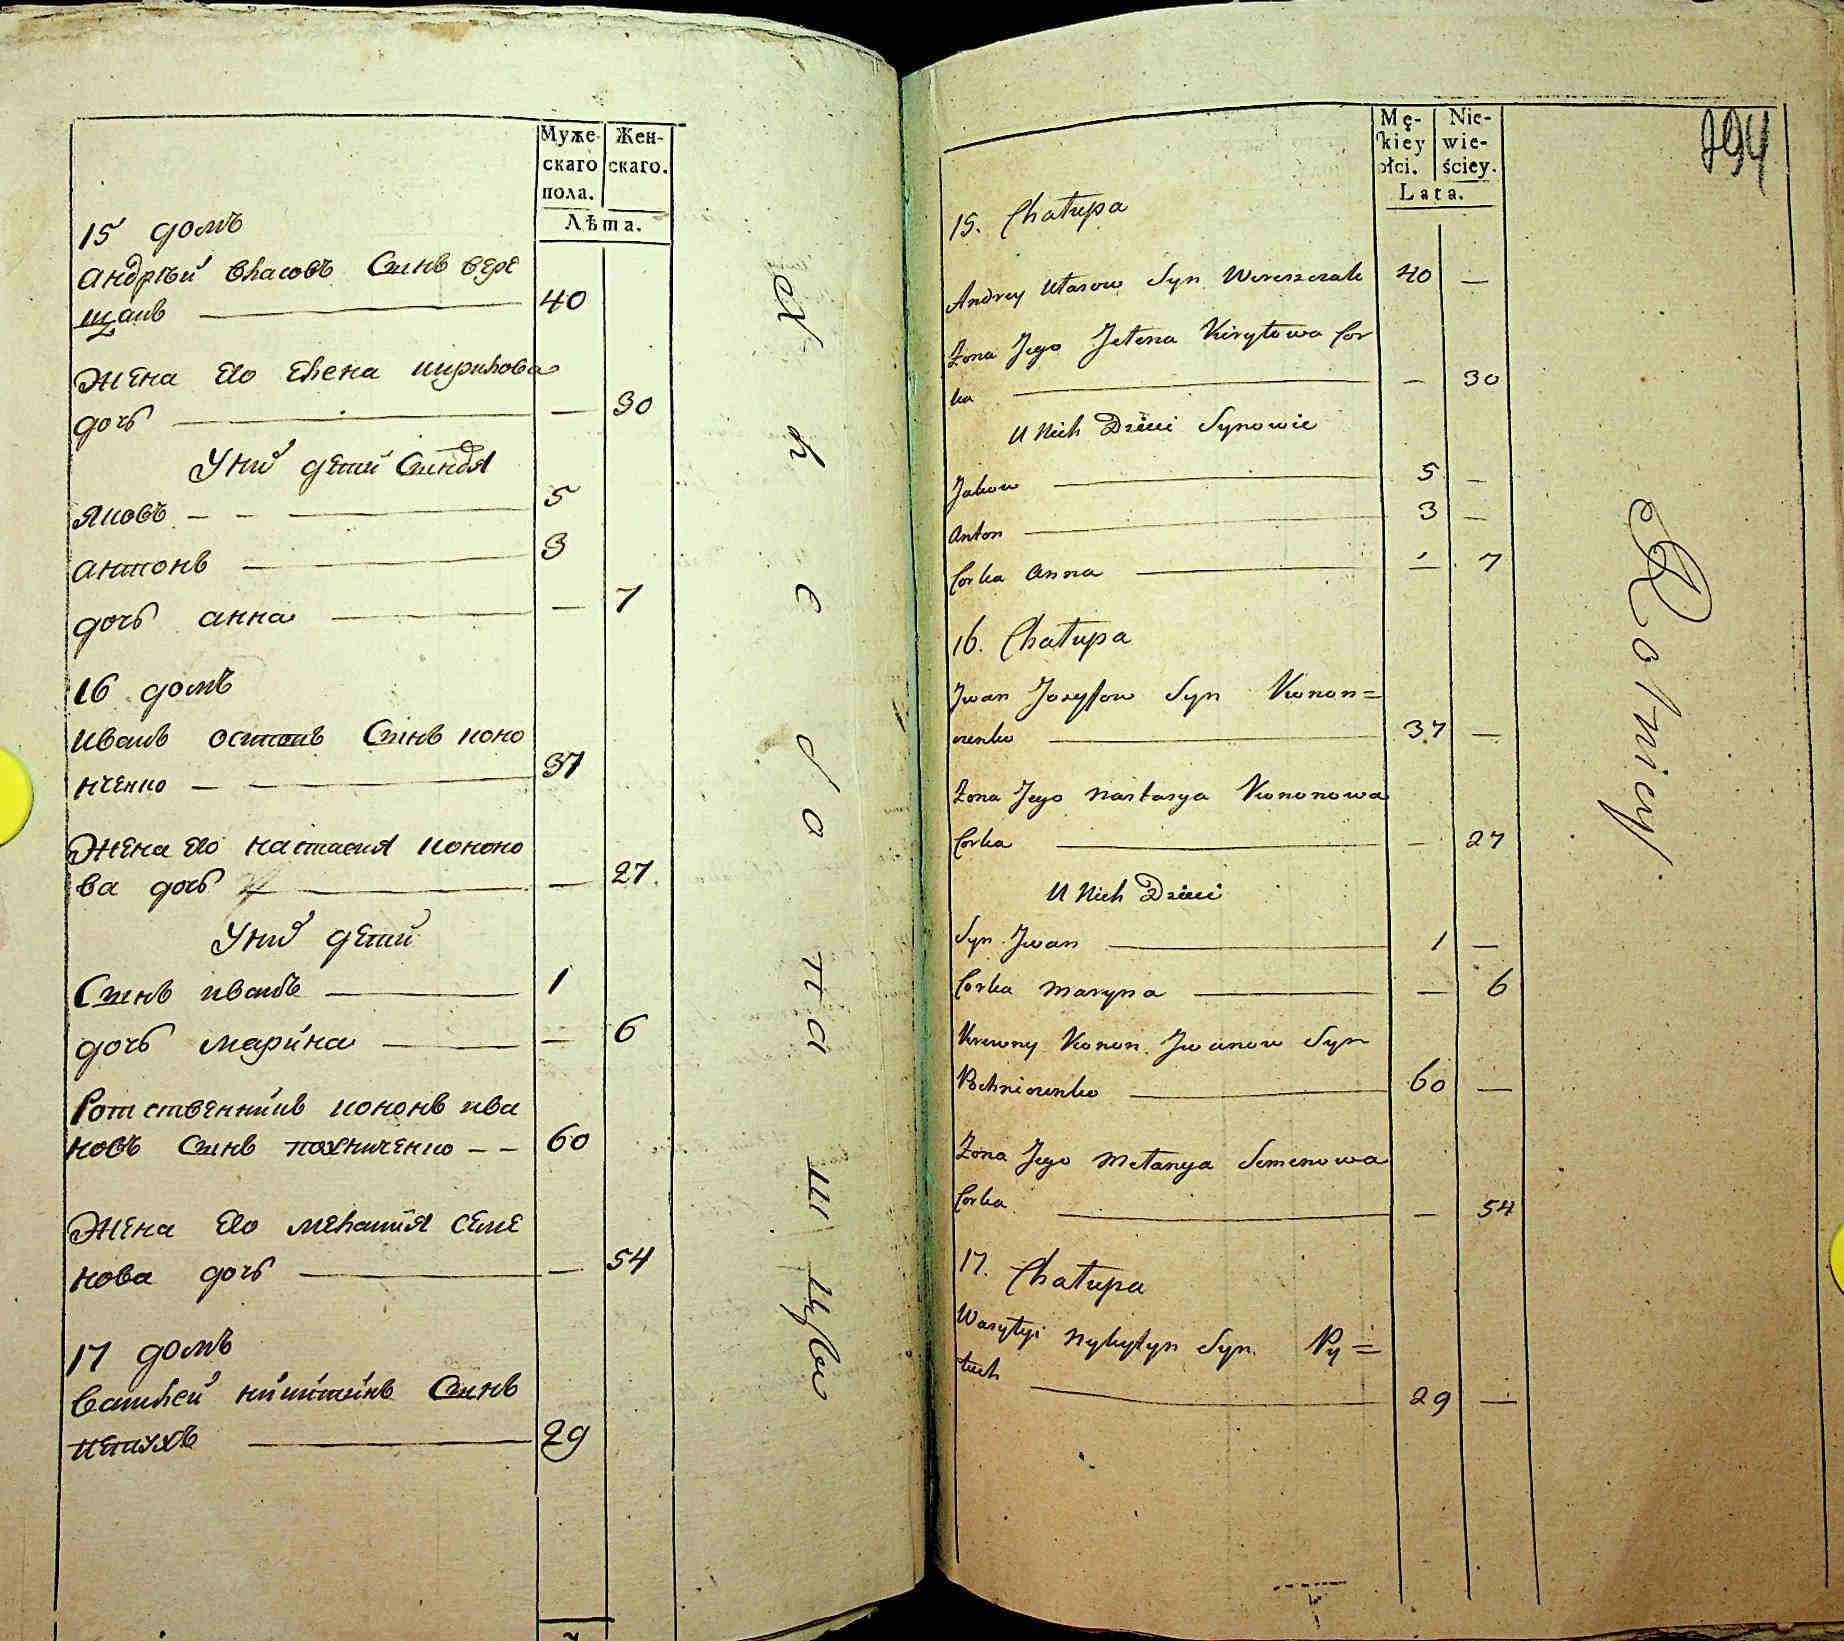 Муже-
скаго
пола.
Жен-
скаго.
Лѣта.
15 домъ
андрѣй власовъ Синъ вере
щака 40
жена его елена кирилова
дочь — 30
У них дети Синовя
яковъ 5
антонъ 3
дочь анна — 7
16 домъ
иванъ осиповъ Синъ коно
нченко 37
жена его настасия кононо
ва дочь — 27
У них дети
Синъ иванъ 1
дочь марина — 6
Ротственникъ кононъ ива
новъ Синъ пахниченко 60
жена его мелания семе
нова дочь — 54
17 домъ
василей никитинъ Синъ
петухъ 29
Хлебопашцы
294
Mę-
kiey
płci.
Nie-
wie-
ściey.
Lata.
15. Chałupa
Andrey Własow Syn Wereszczak 40 —
Żona Jego Jełena Kiryłowa Cor
ka — 30
U Nich Dzieci Synowie
Jakow 5 —
Anton 3 —
Corka Anna — 7
16. Chałupa
Jwan Jozyffow Syn Konon=
czenko 37 —
Żona Jego Nastasya Kononowa
Corka — 27
U Nich Dzieci
Syn Jwan 1 —
Corka Maryna — 6
Krewny Konon Jwanow Syn
Pochniczenko 60 —
Żona Jego Mełanya Semenowa
Corka — 54
17. Chałupa
Wasyłyi Nykytyn Syn Py=
tuch 29 —
Rolnicy